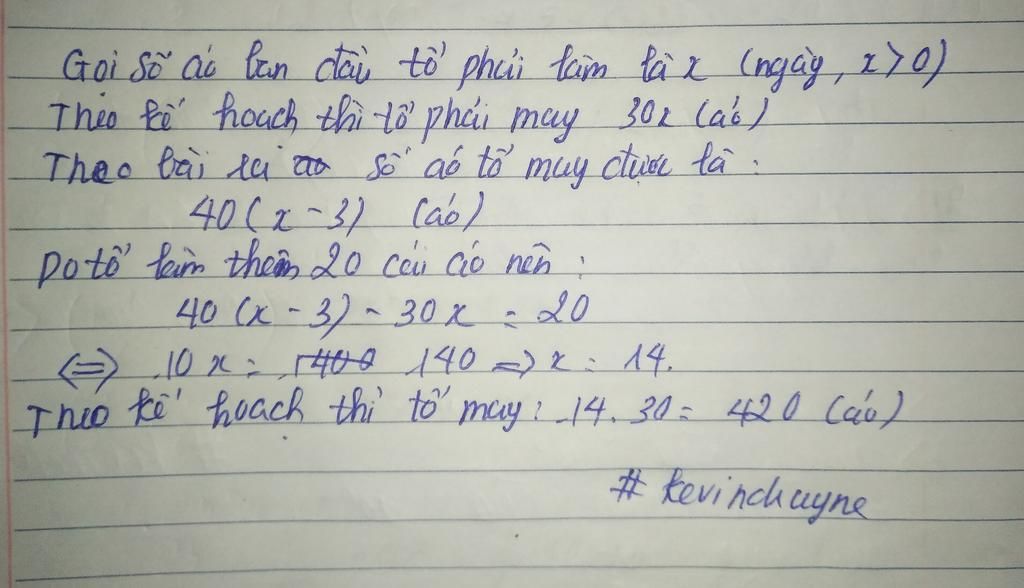 Gọi số áo ban đầu tổ phải làm là x (ngày, x > 0)
Theo kế hoạch thì tổ phải may 30x (áo)
Theo bài ra số áo tổ may được là :
40(x - 3) (áo)
Do tổ làm thêm 20 cái áo nên :
40 (x - 3) - 30x = 20
<=> 10x = 1400 140 => x = 14.
Theo kế hoạch thì tổ may : 14 . 30 = 420 (áo)
# kevinchayne